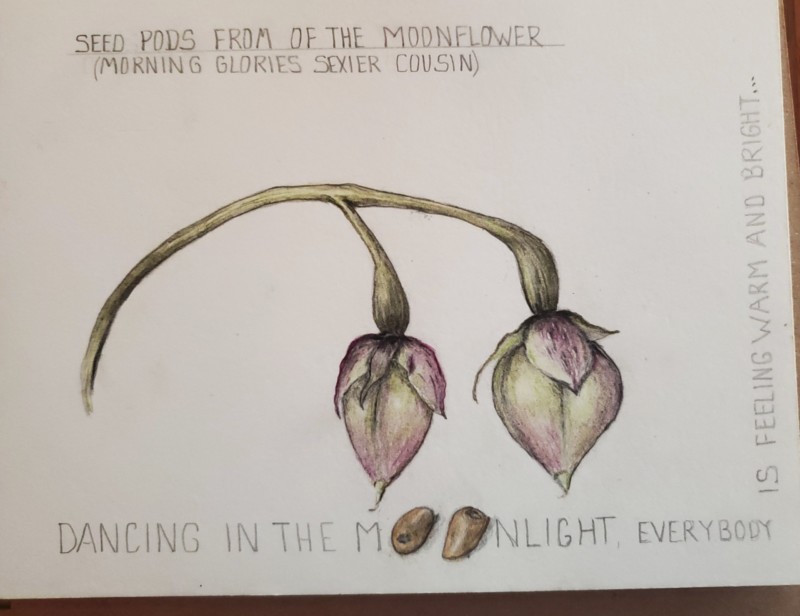 SEED PODS FROM OF THE MOONFLOWER
(MORNING GLORIES SEXIER COUSIN)
DANCING IN THE MOONLIGHT, EVERYBODY
IS FEELING WARM AND BRIGHT...